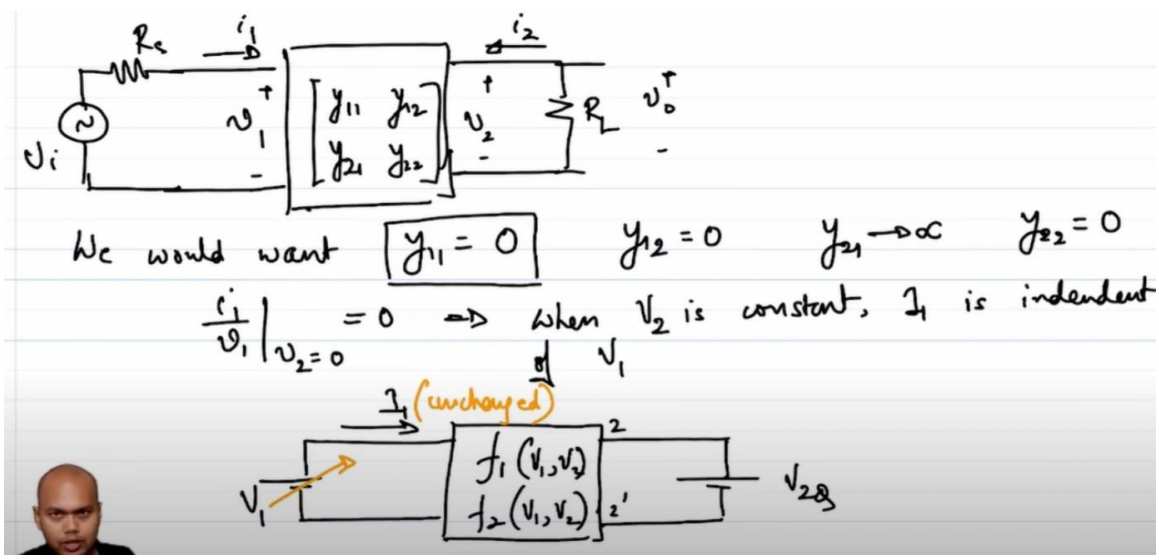 R_s i_1 i_2
v_i + v_1 - [ y_11 y_12 + v_2 - R_L v_o + -
y_21 y_22 ]
We would want y_11 = 0 y_12 = 0 y_21 → ∝ y_22 = 0
i_1/v_1 |_{v_2 = 0} = 0 ⇒ when V_2 is constant, I_1 is indendent
of V_1
I_1 (unchanged)
V_1 f_1 (V_1, V_2) 2 V_2Q
f_2 (V_1, V_2) 2'